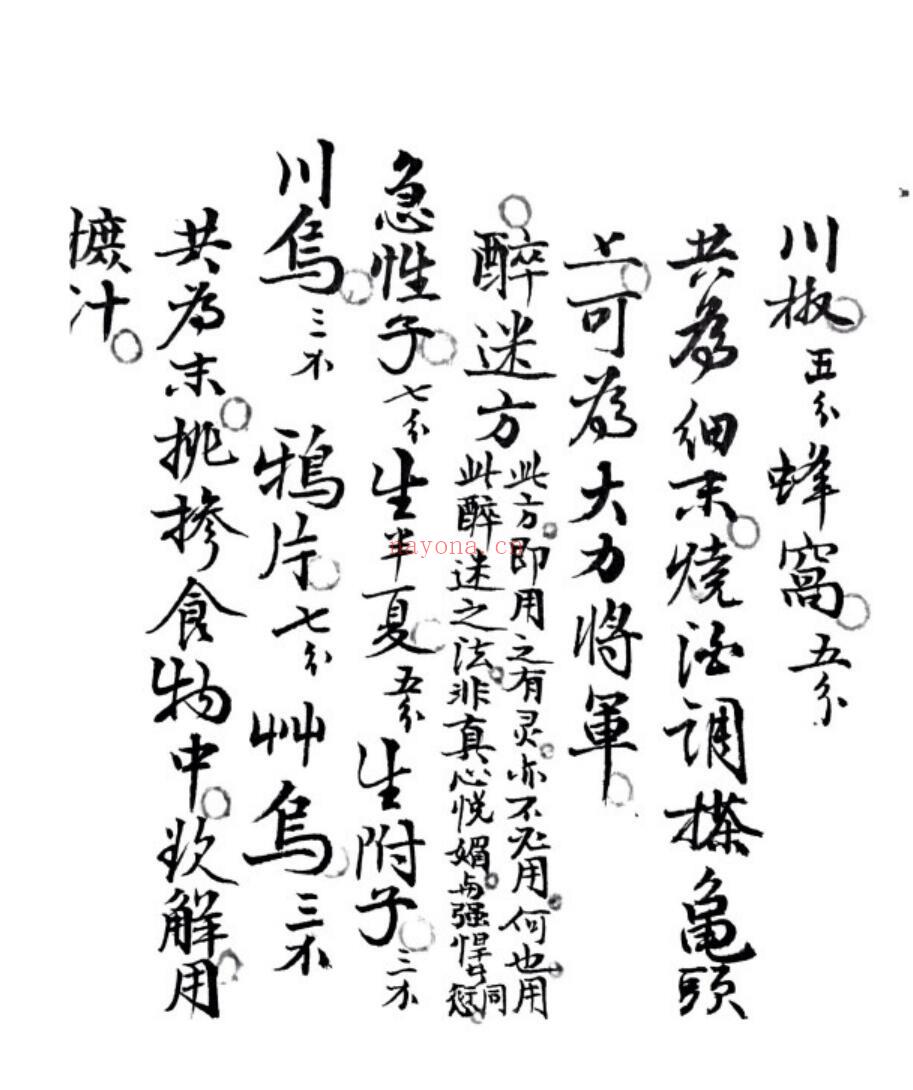 川椒五分 蜂窩五分
共為細末燒酒調搽龜頭
上可為大力將軍
醉迷方 此方即用之有灵亦不必用何也用
此醉迷之法非真心悦媚与强悍
急性子七分 生半夏五分 生附子三分
川烏三分 鴉片七分 艸烏三分
共為末挑摻食物中欲解用
汁
nayona.cn